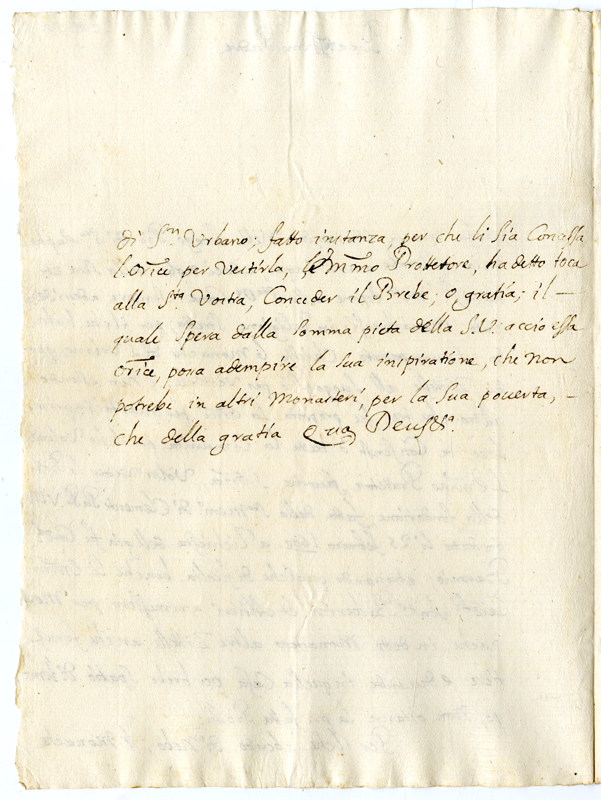 di Sn Urbano; fatto instanza, per che li sia Concessa
l'orice per vestirla, Emmo Protettore, ha detto toca
alla Sta Vostra, Conceder il Brebe; o gratia; il —
quale spera dalla somma pieta della S.V. accio essa
orice, possa adempire la sua inspiratione, che non
potrebe in altri Monasteri, per la sua pouerta, —
che della gratia Qua Deus &a.